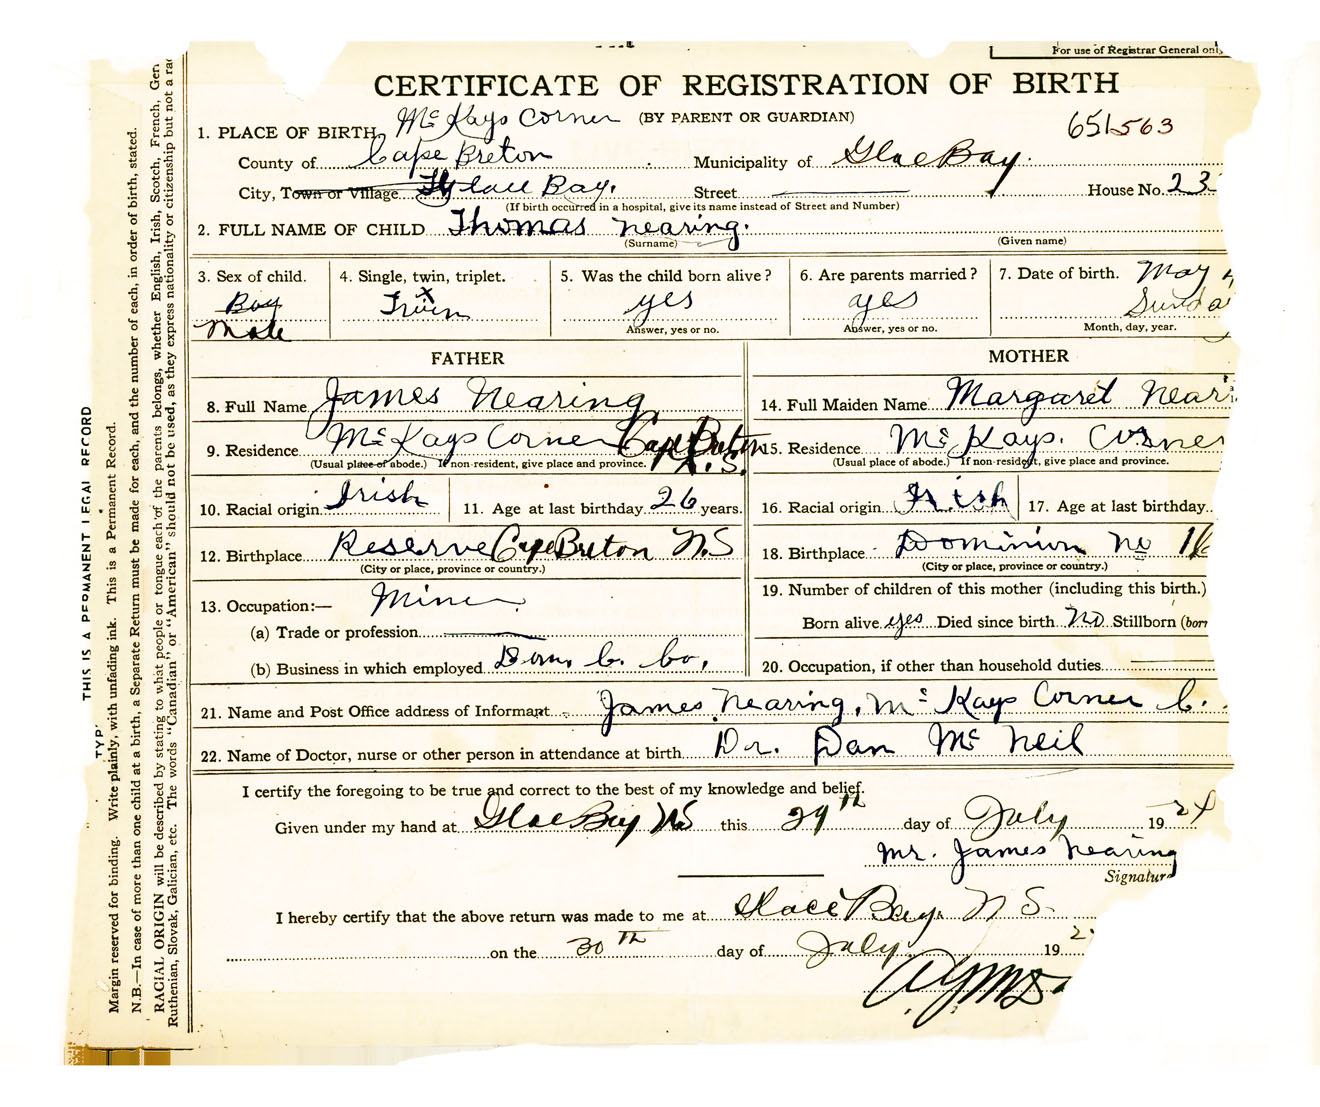 For use of Registrar General only
CERTIFICATE OF REGISTRATION OF BIRTH
(BY PARENT OR GUARDIAN)
651563
1. PLACE OF BIRTH McKays Corner
County of Cape Breton Municipality of Glace Bay.
City, Town or Village Glace Bay. Street House No. 23
(If birth occurred in a hospital, give its name instead of Street and Number)
2. FULL NAME OF CHILD Thomas Nearing.
(Surname) (Given name)
3. Sex of child. 4. Single, twin, triplet. 5. Was the child born alive? 6. Are parents married? 7. Date of birth. May
Boy Twin yes yes Sunda
Male Answer, yes or no. Answer, yes or no. Month, day, year.
FATHER MOTHER
8. Full Name James Nearing 14. Full Maiden Name Margaret Near
9. Residence McKays Corner Cape Breton N.S. 15. Residence McKays. Corner
(Usual place of abode.) If non-resident, give place and province. (Usual place of abode.) If non-resident, give place and province.
10. Racial origin Irish 11. Age at last birthday 26 years. 16. Racial origin Irish 17. Age at last birthday
12. Birthplace Reserve Cape Breton N.S 18. Birthplace Dominion No 1
(City or place, province or country.) (City or place, province or country.)
13. Occupation:— Miner 19. Number of children of this mother (including this birth.)
(a) Trade or profession Born alive yes Died since birth No Stillborn (born
(b) Business in which employed Dom. C. Co. 20. Occupation, if other than household duties
21. Name and Post Office address of Informant James Nearing, Mc Kays Corner C.
22. Name of Doctor, nurse or other person in attendance at birth Dr. Dan McNeil
I certify the foregoing to be true and correct to the best of my knowledge and belief.
Given under my hand at Glace Bay NS this 29th day of July 1924
Mr. James Nearing
Signature
I hereby certify that the above return was made to me at Glace Bay. N S.
on the 30th day of July 192
THIS IS A PERMANENT LEGAL RECORD
TYP
Margin reserved for binding. Write plainly, with unfading ink. This is a Permanent Record.
N.B.—In case of more than one child at a birth, a Separate Return must be made for each, and the number of each, in order of birth, stated.
RACIAL ORIGIN will be described by stating to what people or tongue each of the parents belongs, whether English, Irish, Scotch, French, Ger
Ruthenian, Slovak, Galician, etc. The words "Canadian" or "American" should not be used, as they express nationality or citizenship but not a rac